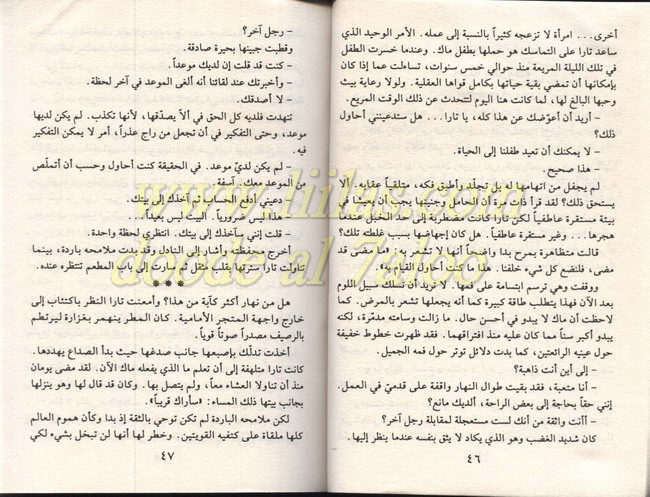 أخرى... امرأة لا تزعجه كثيراً بالنسبة إلى عمله. الأمر الوحيد الذي
ساعد تارا على التماسك هو حملها بطفل ماك. وعندما خسرت الطفل
في تلك الليلة المريعة منذ حوالي خمس سنوات، تساءلت عما إذا كان
بإمكانها أن تمضي بقية حياتها بكامل قواها العقلية. ولولا رعاية بيث
وحبها البالغ لها، لما كانت هنا اليوم لتتحدث عن ذلك الوقت المريع.
- أريد أن أعوّضك عن هذا كله، يا تارا... هل ستدعينني أحاول
ذلك؟
- لا يمكنك أن تعيد طفلنا إلى الحياة.
- هذا صحيح.
لم يجفل من اتهامها له بل تجلّد وأطبق فكه، متلقياً عقابه. ألا
يستحق ذلك؟ لقد قرأ ذات مرة أن الحامل وجنينها يجب أن يعيشا في
بيئة مستقرة عاطفياً لكن تارا كانت مضطربة إلى حد الخبل عندما
هجرها... وغير مستقرة عاطفياً. هل كان إجهاضها بسبب غلطته تلك؟
قالت متظاهرة بمرح بدا واضحاً أنها لا تشعر به: «ما مضى قد
مضى، فلنضع كل شيء خلفنا. هذا ما كنت أحاول القيام به».
ووقفت وهي ترسم ابتسامة على فمها. لا تريد أن تسلك سبيل اللوم
بعد الآن فهذا يتطلب طاقة كبيرة كما أنه يجعلها تشعر بالمرض. كما
لاحظت أن ماك لا يبدو في أحسن حال. ما زالت وسامته مدمّرة، لكنه
يبدو أكبر سناً مما كان عليه منذ افتراقهما. فقد ظهرت خطوط خفيفة
حول عينيه الرائعتين، كما بدت دلائل توتر حول فمه الجميل.
- إلى أين أنت ذاهبة؟
- أنا متعبة، فقد بقيت طوال النهار واقفة على قدميّ في العمل.
إنني حقاً بحاجة إلى بعض الراحة، ألديك مانع؟
- أأنت واثقة من أنك لست مستعجلة لمقابلة رجل آخر؟
كان شديد الغضب وهو الذي يكاد لا يثق بنفسه عندما ينظر إليها.
٤٦
- رجل آخر؟
وقطبت جبينها بحيرة صادقة.
- كنت قد قلت إن لديك موعداً.
- وأخبرتك عند لقائنا أنه ألغى الموعد في آخر لحظة.
- لا أصدقك.
تنهدت فلديه كل الحق في ألاّ يصدّقها، لأنها تكذب. لم يكن لديها
موعد، وحتى التفكير في أن تجعل من راج عذراً، أمر لا يمكن التفكير
فيه.
- لم يكن لديّ موعد. في الحقيقة كنت أحاول وحسب أن أتملّص
من الموعد معك. آسفة.
- دعيني أدفع الحساب ثم آخذك إلى بيتك.
- هذا ليس ضرورياً. البيت ليس بعيداً...
- قلت إنني سآخذك إلى بيتك. انتظري لحظة واحدة.
أخرج محفظته وأشار إلى النادل وقد بدت ملامحه باردة، بينما
تناولت تارا سترتها بقلب مثقل ثم سارت إلى باب المطعم تنتظره عنده.
***
هل من نهار أكثر كآبة من هذا؟ وأمعنت تارا النظر باكتئاب إلى
خارج واجهة المتجر الأمامية. كان المطر ينهمر بغزارة ليرتطم
بالرصيف مصدراً صوتاً قوياً.
أخذت تدلّك بإصبعها جانب صدغها حيث بدأ الصداع يهددها.
كانت تارا متلهفة إلى أن تعلم ما الذي يفعله ماك الآن. لقد مضى يومان
منذ أن تناولا العشاء معاً، ولم يتصل بها. وكان قد قال لها وهو ينزلها
بجانب بيتها ذلك المساء: «سأراك قريباً».
لكن ملامحه الباردة لم تكن توحي بالثقة إذ بدا وكأن هموم العالم
كلها ملقاة على كتفيه القويتين. وخطر لها أنها لن تبخل بشيء لكي
٤٧
www.liilas.com
doode al 7aloo